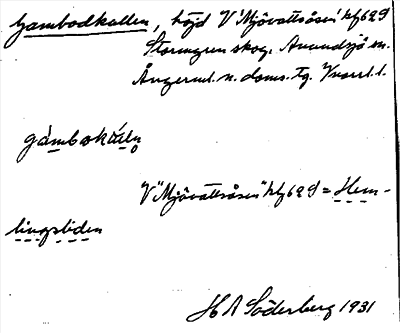 Gambodkallen, höjd V "Mjövattsåsen" hfg 629
Storngren skog, Anundsjö sn.
Ångerml. n. doms. tg. Vnorrl. l.
gàmbokáln
V "Mjövattsåsen" hfg 629 = Hem-
lingsliden
H A Söderberg 1931